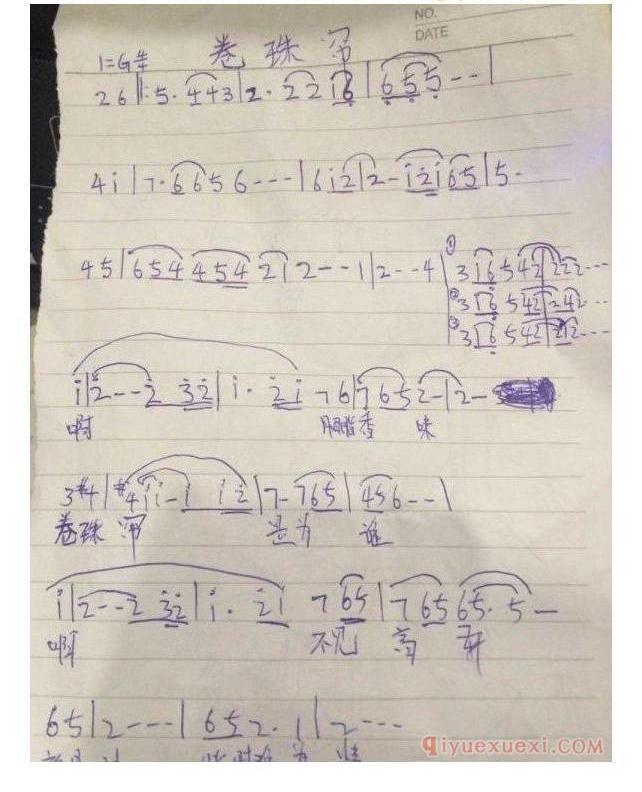 NO.
DATE
卷珠帘
1=G 4/4
26‖:5·443|2·2216|655--|
4i|7·6656---|6i2|2-i2i65|5-
45|654 454 21 2---1|2---4|①316542|222---
②316542|242---
③316542|212---
i|2--2 32|i· 2i 76|7652-|2-
啊 胭脂香味
3#4|#4ii-i i2|7-765|456--|
卷珠帘 是为谁
i|2--2 32|i· 2i 765|765 65·5-
啊 不见高轩
65|2---|652·1|2---
qiyuexuexi.COM